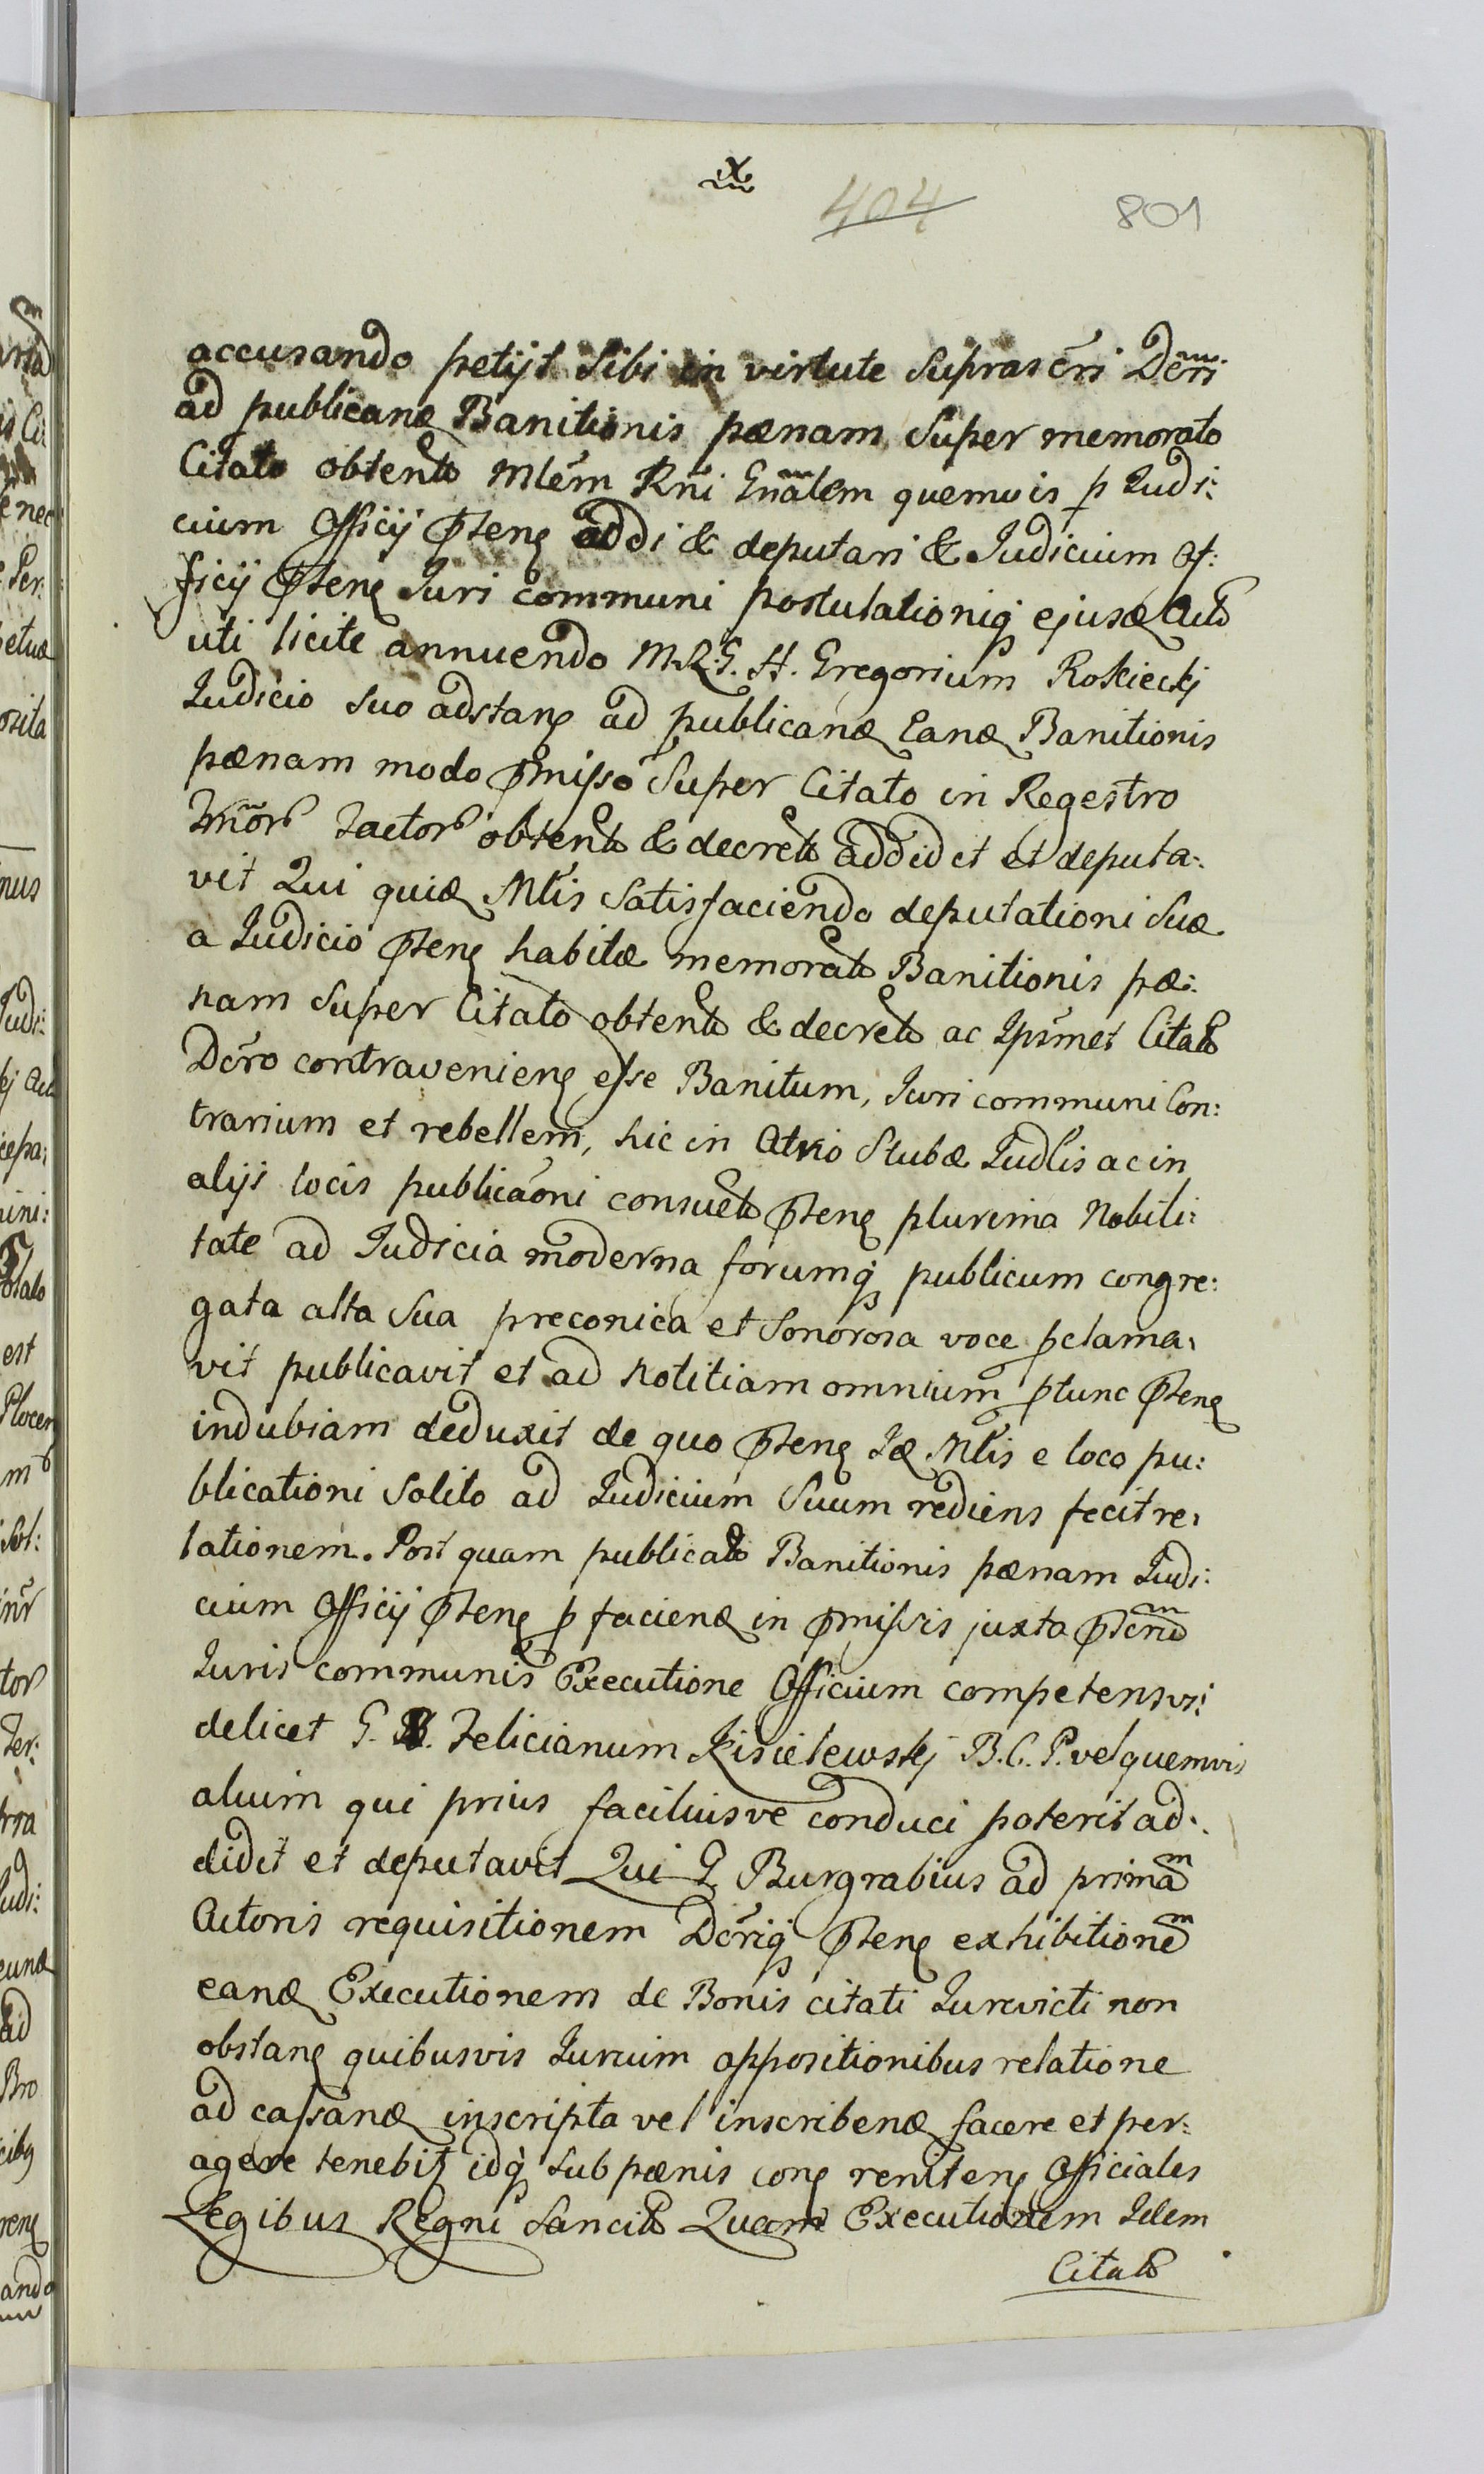 404 801
accusando petijt Sibi in virtute Suprascri Dcri
ad publicanæ Banitionis pænam Super memorato
Citato obtenta Mlem Rni Gnãlem quemvis p Judi:
cium Officij Pteng addi & deputari & Judicium Of:
ficij Pteng Juri communi postulationiq ejusæ Acto
uti licite annuendo M.R.G. H. Gregorium Rokieckj
Judicio Suo adstang ad publicanæ Eanæ Banitionis
pænam modo Pmisso Super Citato in Regestro
obtento & decreto addidit et deputa:
vit Qui quiæ Mlis Satisfaciendo deputationi Suæ
a Judicio Pteng habitæ memorato Banitionis pæ:
nam Super Citato obtento & decreto ac Ipsmet Citato
Dcro contravenieng esse Banitum, Juri communi Con:
trarium et rebellem, hic in Atrio Stubæ Judlis ac in
alijs locis publicaoni consueto Pteng plurima Nobili:
tate ad Judicia moderna forumq publicum congre:
gata alta Sua preconica et Sonorosa voce pclama:
vit publicavit et ad Notitiam omnium ptunc Pteng
indubiam deduxit de quo Pteng Iæ Mlis e loco pu:
blicationi Solito ad Judicium Suum rediens fecit re:
lationem. Post quam publicato Banitionis pænam Judi:
cium Officij Pteng p facienæ in Pmissis juxta
Juris communis Executione Officium competens vi:
delicet G. N. Felicianum Kisielewskj B.C.P. vel quemvis
alium qui prius faciliusve conduci poterit ad:
didit et deputavit Qui G Burgrabius ad primã
Actoris requisitionem Dcriq Pteng exhibitionẽ
eanæ Executionem de Bonis citati Jurevicti non
obstang quibusvis Jurium oppositionibus relatione
ad cassanæ inscripta vel inscribenæ facere et per:
agere tenebit idq Sub pænis cong reniteng Officiales
Legibus Regni Sancito Quam Executionem Idem
Citato